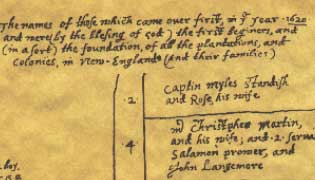 The names of those which came over first, in yᵉ year .1620
and were (by the blesing of God) the first beginers, and
(in a sort) the foundation, of all the plantations, and
Colonies, in New-England (And their families)
.2. Captin Myles Standish
and Rose, his wife
.4. mʳ Christpher Martin,
and his wife; and .2. serva
Salamon prower, and
John Langemore
boy.